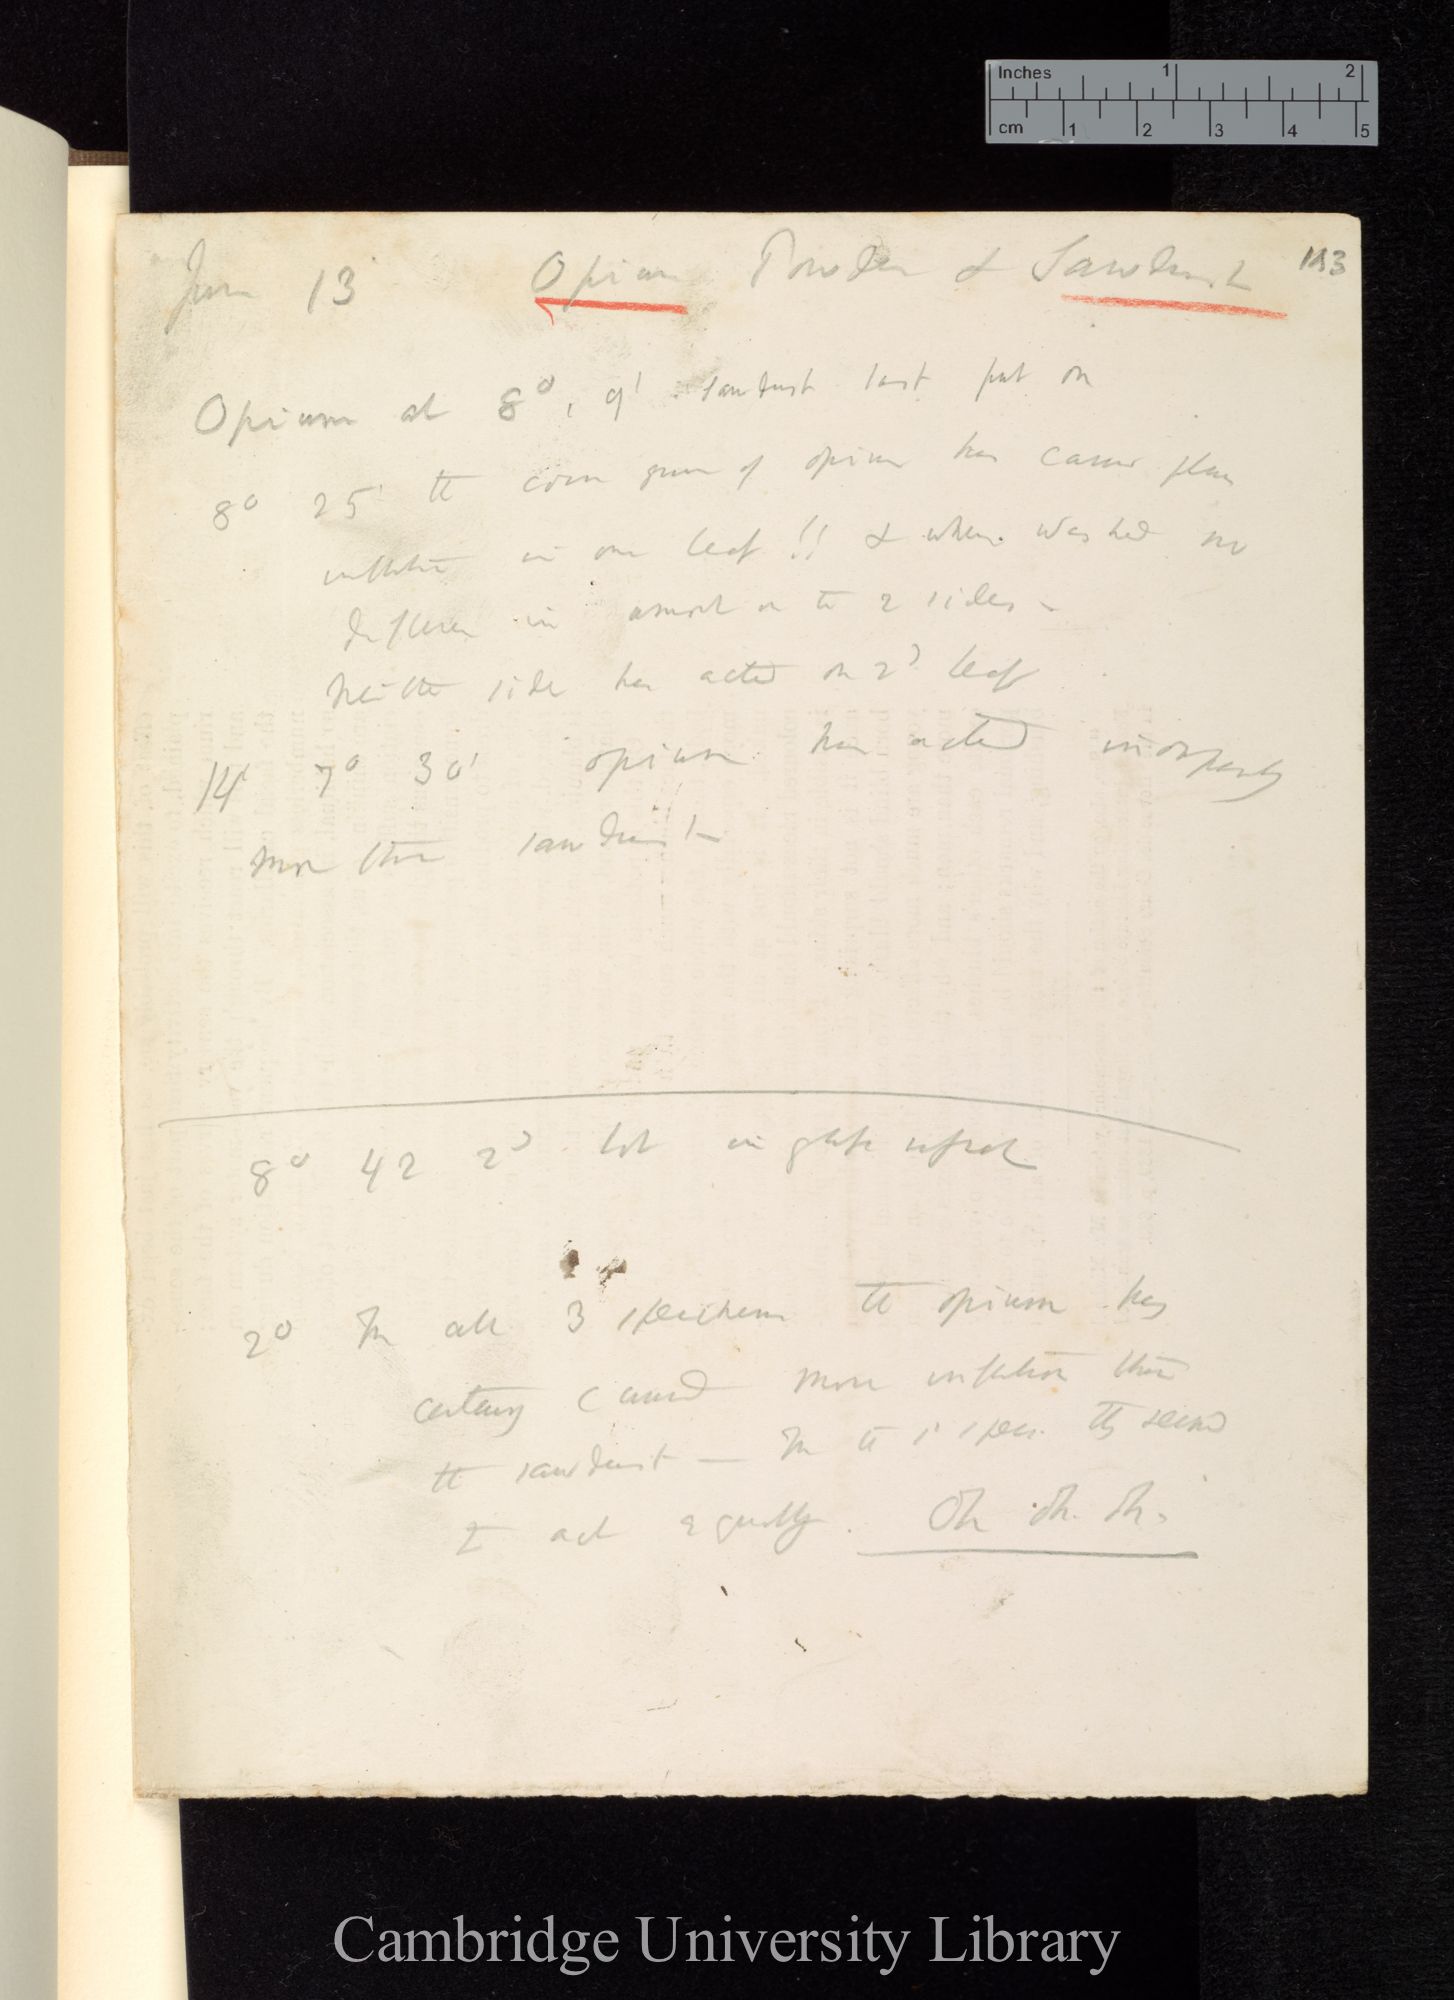 Inches 1 2
cm 1 2 3 4 5
June 13 Opium Powder & Sawdust 113
Opium at 8°, 9' sawdust last put on
8° 25' the opium has caused plain
inflection in one leaf!! & when washed no
difference in amount on the 2 sides –
Neither side has acted on 2d leaf
14' 7° 30' opium has acted
more than sawdust
8° 42 2d lot in
2° In all 3 specimens the opium has
certainly caused more inflection than
the sawdust — In the 1s spec. they seemed
to act equally. Oh oh. oh.
Cambridge University Library